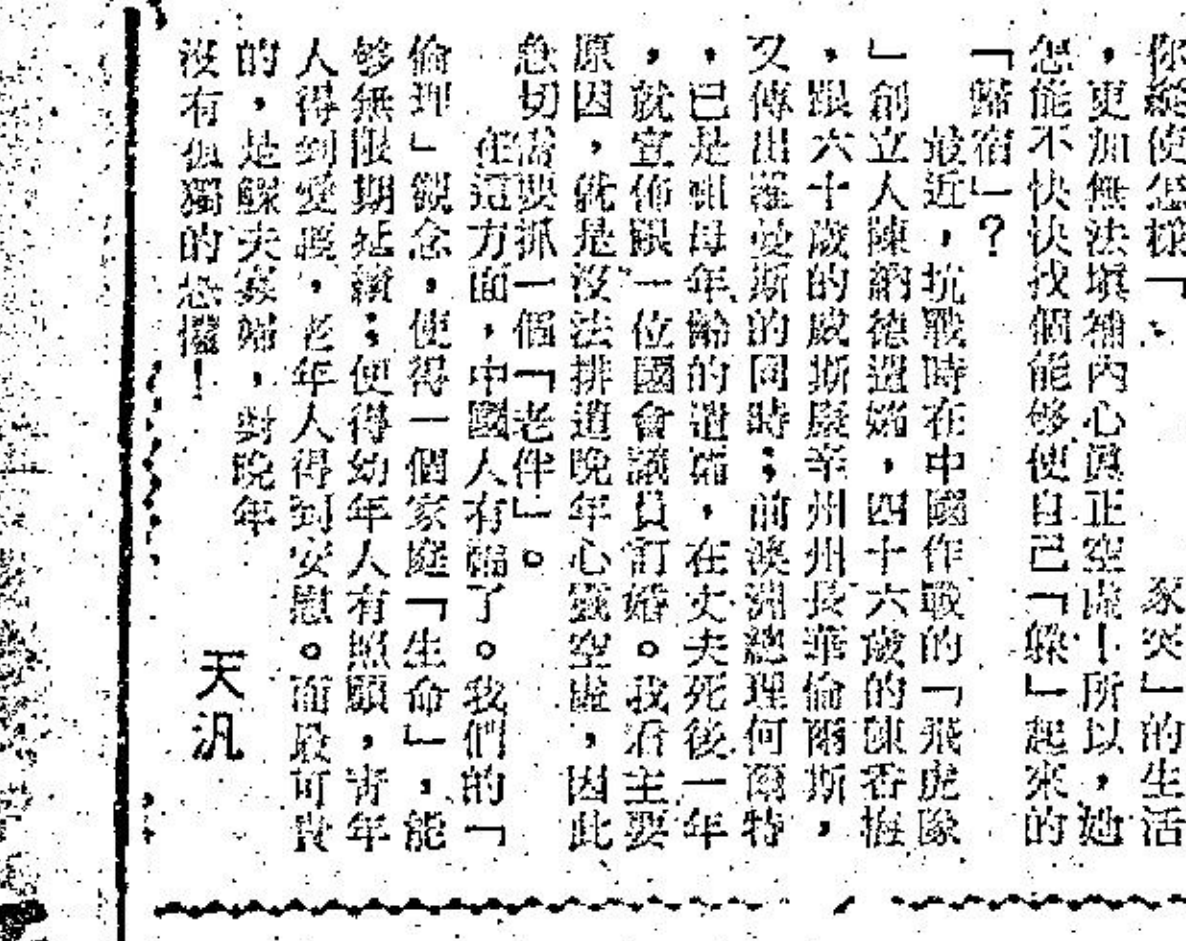 你縱使怎樣「　　家突」的生活
，更加無法填補內心眞正空虛！所以，她
怎能不快快找個能够使自己「躱」起來的
「歸宿」？
最近，抗戰時在中國作戰的「飛虎隊
」創立人陳納德遺孀，四十六歲的陳香梅
，跟六十歲的威斯康辛州州長華倫爾斯，
又傳出羅曼斯的同時；前澳洲總理何爾特
，已是祖母年齡的遺孀，在丈夫死後一年
，就宣佈跟一位國會議員訂婚。我看主要
原因，就是沒法排遣晚年心靈空虛，因此
急切需要抓一個「老伴」。
在這方面，中國人有福了。我們的「
倫理」觀念，使得一個家庭「生命」，能
够無限期延續；使得幼年人有照顧，靑年
人得到愛護，老年人得到安慰。而最可貴
的，是鰥夫寡婦，對晚年
沒有孤獨的恐懼！
天汎